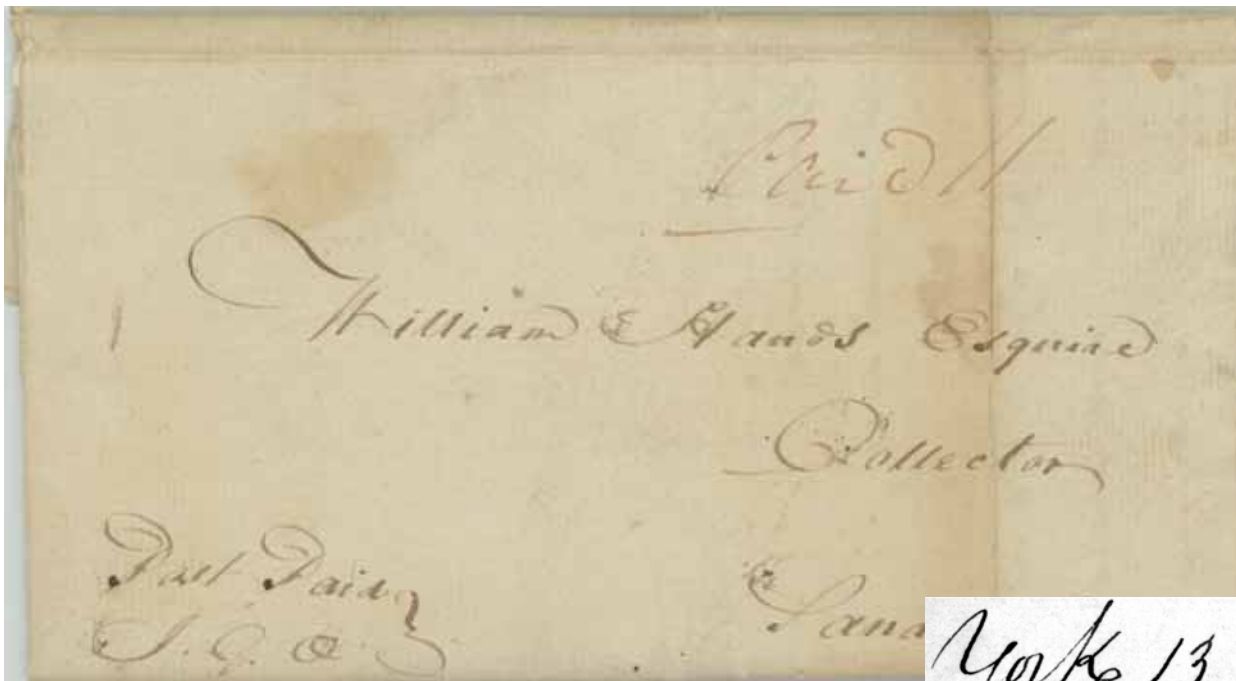 Paid 11
William Hands Esquire
Collector
Post Paid
I. G. O.
Sand
York 13